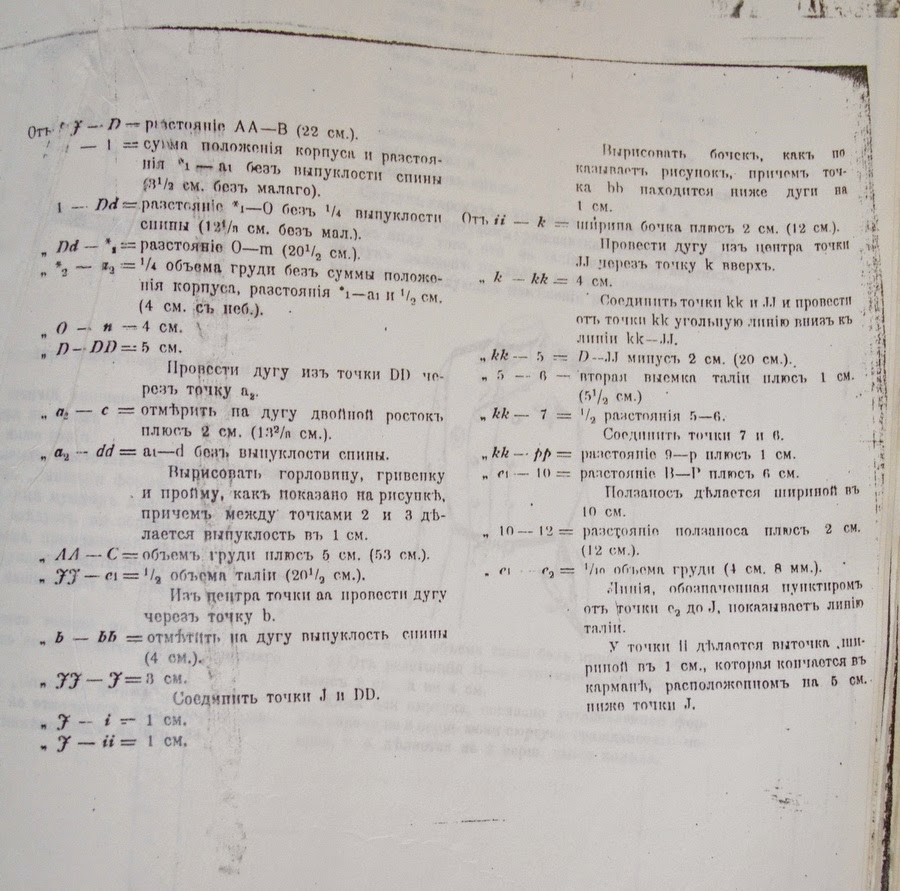 Отъ J — D = разстояніе AA—B (22 см.).
— 1 = сумма положенія корпуса и разстоя-
нія *1 — a1 безъ выпуклости спины
(3½ см. безъ малаго).
1 — Dd = разстояніе *1—O безъ ¼ выпуклости
спины (12⅛ см. безъ мал.).
„ Dd — *1 = разстояніе O—m (20½ см.).
„ *2 — a2 = ¼ объема груди безъ суммы положе-
нія корпуса, разстоянія *1—a1 и ½ см.
(4 см. съ неб.).
„ O — n = 4 см.
„ D — DD = 5 см.
Провести дугу изъ точки DD че-
резъ точку a2.
„ a2 — c = отмѣрить на дугу двойной ростокъ
плюсъ 2 см. (13²/₈ см.).
„ a2 — dd = a1—d безъ выпуклости спины.
Вырисовать горловину, гривенку
и пройму, какъ показано на рисункѣ,
причемъ между точками 2 и 3 дѣ-
лается выпуклость въ 1 см.
„ AA — C = объемъ груди плюсъ 5 см. (53 см.).
„ JJ — e1 = ½ объема таліи (20½ см.).
Изъ центра точки aa провести дугу
черезъ точку b.
„ b — bb = отмѣтить на дугу выпуклость спины
(4 см.).
„ JJ — J = 3 см.
Соединить точки J и DD.
„ J — i = 1 см.
„ J — ii = 1 см.
Вырисовать бочекъ, какъ по
казываетъ рисунокъ, причемъ точ-
ка bb находится ниже дуги на
1 см.
Отъ ii — k = ширина бочка плюсъ 2 см. (12 см.).
Провести дугу изъ центра точки
JJ черезъ точку k вверхъ.
„ k — kk = 4 см.
Соединить точки kk и JJ и провести
отъ точки kk угольную линію внизъ къ
линіи kk—JJ.
„ kk — 5 = D—JJ минусъ 2 см. (20 см.).
„ 5 — 6 — вторая выемка таліи плюсъ 1 см.
(5½ см.)
„ kk — 7 = ½ разстоянія 5—6.
Соединить точки 7 и 6.
„ kk — pp = разстояніе 9—p плюсъ 1 см.
„ e1 — 10 = разстояніе B—P плюсъ 6 см.
Ползаносъ дѣлается шириной въ
10 см.
„ 10 — 12 = разстояніе ползаноса плюсъ 2 см.
(12 см.).
„ e1 — e2 = ¹/₁₀ объема груди (4 см. 8 мм.).
Линія, обозначенная пунктиромъ
отъ точки e2 до J, показываетъ линію
таліи.
У точки ii дѣлается выточка ши-
риной въ 1 см., которая кончается въ
карманѣ, расположенномъ на 5 см.
ниже точки J.